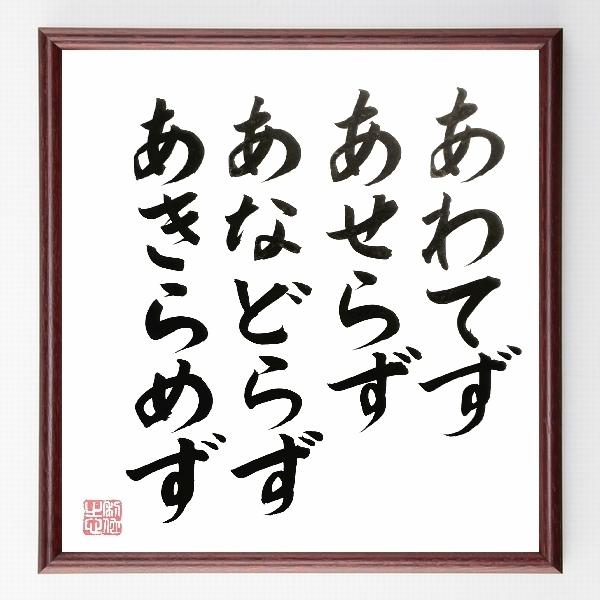 あわてず
あせらず
あなどらず
あきらめず